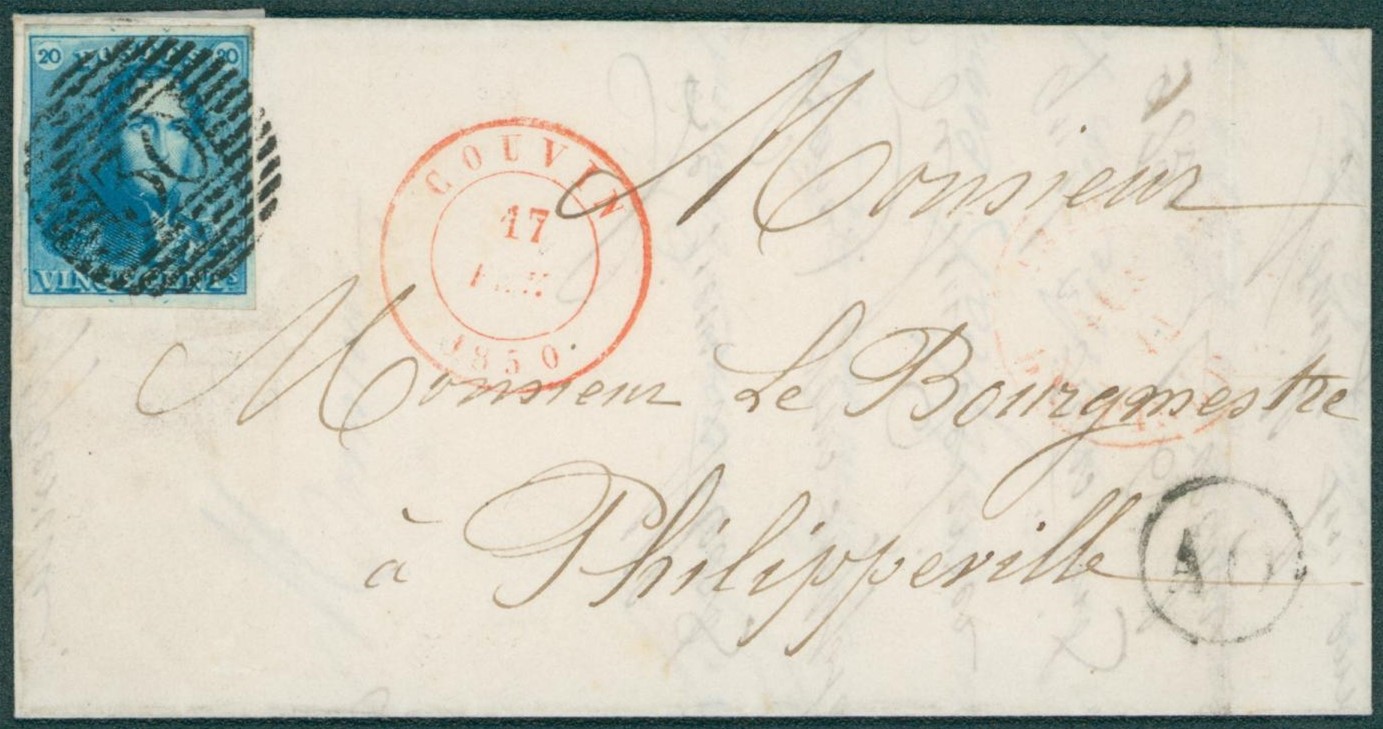 20 POSTES 20
VINGT CENTS
COUVIN
17
1850
Monsieur
Monsieur Le Bourgmestre
à Philippeville